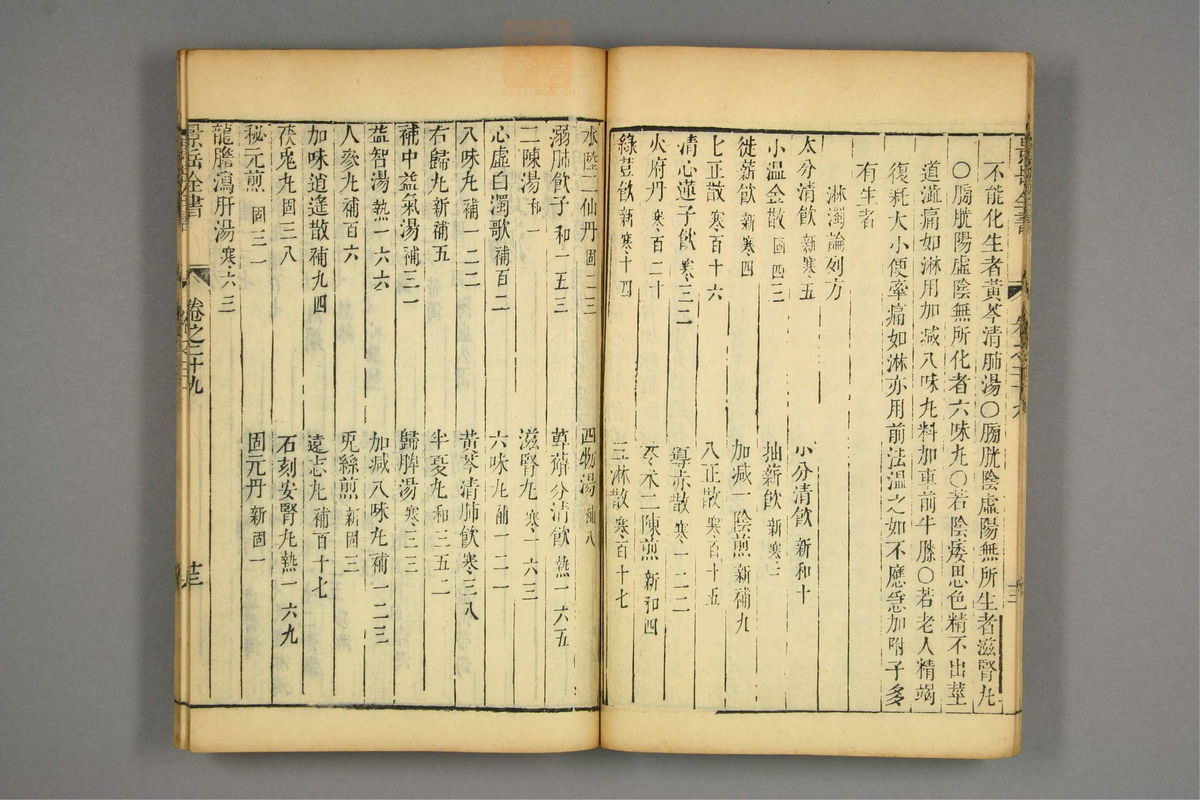 不能化生者黃芩清肺湯〇膀胱陰虛陽無所生者滋腎丸
〇膀胱陽虛陰無所化者六味丸〇若陰痿思色精不出莖
道澁痛如淋用加减八味丸料加車前牛膝〇若老人精竭
復耗大小便牽痛如淋亦用前法溫之如不應急加附子多
有生者
淋濁論列方
太分清飲 新寒五
小分清飲 新和十
小溫金散 固四三
抽薪飲 新寒三
徙薪飲 新寒四
加减一陰煎 新補九
七正散 寒百十六
八正散 寒百十五
清心蓮子飲 寒三二
導赤散 寒一二二
火府丹 寒百二十
苓朮二陳煎 新和四
綠荳飲 新寒十四
三淋散 寒百十七
水陸二仙丹 固二三
四物湯 補八
溺肺飲子 和一五三
萆薢分清飲 熱一六五
二陳湯 和一
滋腎丸 寒一六三
心虛白濁歌 補百二
六味丸 補一二一
八味丸 補一二二
黃芩清肺飲 寒三八
右歸丸 新補五
半夏丸 和三五二
補中益氣湯 補三一
歸脾湯 寒三三
益智湯 熱一六六
加减八味丸 補一二三
人參丸 補百六
兎絲煎 新固三
加味逍遙散 補九四
遠志丸 補百十七
茯兎丸 固三八
石刻安腎丸 熱一六九
秘元煎 固三一
固元丹 新固一
龍膽瀉肝湯 寒六三
景岳全書
卷之二十九
廿三